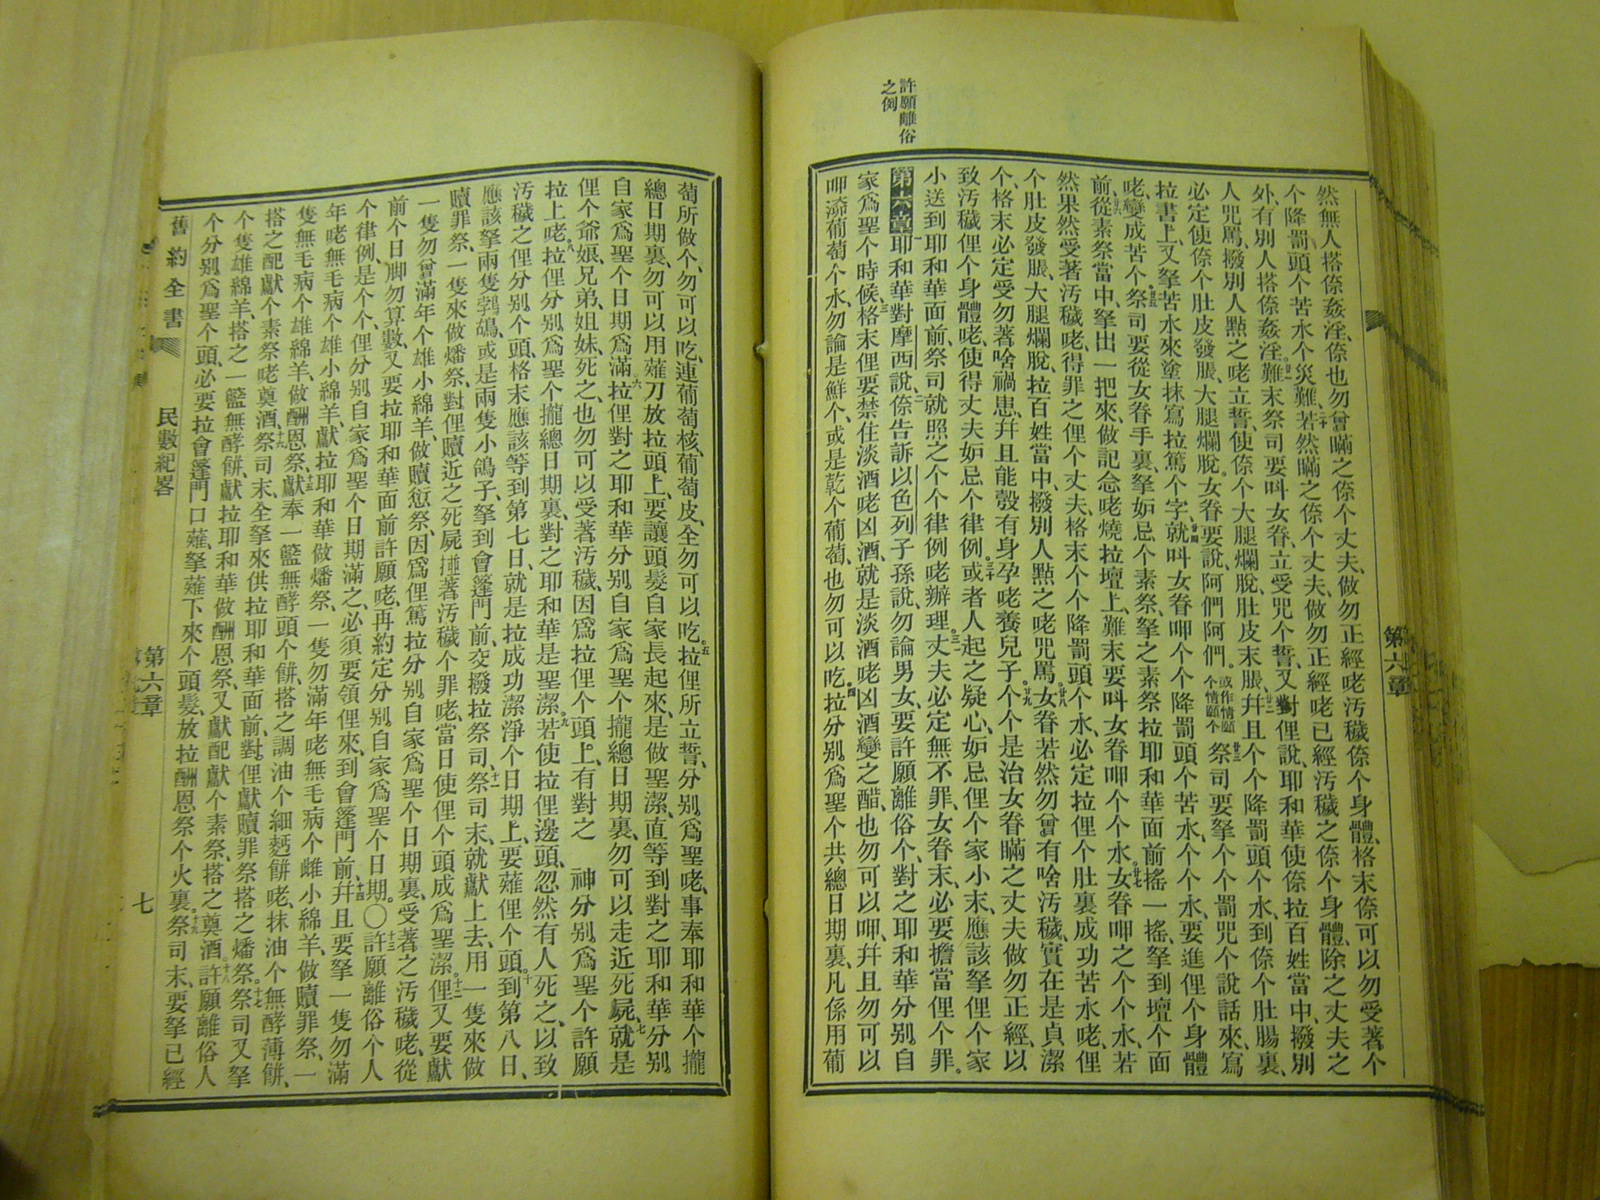 許願離俗
之例
然無人搭倷姦淫、倷也勿曾瞞之倷个丈夫、做勿正經咾汚穢倷个身體、格末倷可以勿受著个
个降罰頭个苦水个災難、二十若然瞞之倷个丈夫、做勿正經咾已經汚穢之倷个身體、除之丈夫之
外、有別人搭倷姦淫。廿一難末祭司要叫女眷、立受咒个誓、又對俚說、耶和華使倷拉百姓當中、撥別
人咒罵、撥別人點之咾立誓、使倷个大腿爛脫、肚皮末脹、廿二幷且个个降罰頭个水、到倷个肚腸裏、
必定使倷个肚皮發脹、大腿爛脫、女眷要說、阿們阿們。或作情願个情願个廿三祭司要拏个个罰咒个說話來、寫
拉書上、又拏苦水來塗抹寫拉篤个字、廿四就叫女眷呷个个降罰頭个苦水、个个水、要進俚个身體
咾、變成苦个、廿五祭司要從女眷手裏、拏妬忌个素祭、拏之素祭拉耶和華面前搖一搖、拏到壇个面
前、廿六從素祭當中、拏出一把來、做記念咾燒拉壇上、難末要叫女眷呷个个水、廿七女眷呷之个个水、若
然果然受著汚穢咾、得罪之俚个丈夫、格末个个降罰頭个水、必定拉俚个肚裏成功苦水咾、俚
个肚皮發脹、大腿爛脫、拉百姓當中、撥別人點之咾咒罵、廿八女眷若然勿曾有啥汚穢、實在是貞潔
个、格末必定受勿著啥禍患、幷且能彀有身孕咾養兒子、廿九个个是治女眷瞞之丈夫做勿正經、以
致汚穢俚个身體咾、使得丈夫妬忌个律例、三十或者人起之疑心、妬忌俚个家小末、應該拏俚个家
小送到耶和華面前、祭司就照之个个律例咾辦理、三一丈夫必定無不罪、女眷末、必要擔當俚个罪。
第六章一耶和華對摩西說、二倷告訴以色列子孫說、勿論男女、要許願離俗个、對之耶和華分別自
家爲聖个時候、三格末俚要禁住淡酒咾凶酒、就是淡酒咾凶酒變之醋、也勿可以呷、幷且勿可以
呷葡萄个水、勿論是鮮个、或是乾个葡萄、也勿可以吃、四拉分別爲聖个共總日期裏、凡係用葡
第六章
萄所做个、勿可以吃、連葡萄核、葡萄皮、全勿可以吃。五拉俚所立誓、分別爲聖咾、事奉耶和華个攏
總日期裏、勿可以用薙刀放拉頭上、要讓頭髮自家長起來、是做聖潔、直等到對之耶和華分別
自家爲聖个日期爲滿、六拉俚對之耶和華分別自家爲聖个攏總日期裏、勿可以走近死屍、七就是
俚个爺娘兄弟、姐妹、死之、也勿可以受著汚穢、因爲拉俚个頭上、有對之 神分別爲聖个許願
拉上咾、八拉俚分別爲聖个攏總日期裏、對之耶和華是聖潔、九若使拉俚邊頭、忽然有人死之、以致
汚穢之俚分別个頭、格末應該等到第七日、就是拉成功潔淨个日期上、要薙俚个頭、十到第八日、
應該拏兩隻鹁鴿、或是兩隻小鴿子、拏到會篷門前、交撥拉祭司、十一祭司末、就獻上去、用一隻來做
贖罪祭、一隻來做燔祭、對俚贖近之死屍㨃著汚穢个罪咾、當日使俚个頭成爲聖潔。十二俚又要獻
一隻勿曾滿年个雄小綿羊、做贖愆祭、因爲俚篤拉分別自家爲聖个日期裏、受著之汚穢咾、從
前个日脚勿算數、又要拉耶和華面前許願咾、再約定分別自家爲聖个日期。〇十三許願離俗个人
个律例、是个个、俚分別自家爲聖个日期滿之、必須要領俚來、到會篷門前、十四幷且要拏一隻勿滿
年咾無毛病个雄小綿羊、獻拉耶和華做燔祭、一隻勿滿年咾無毛病个雌小綿羊、做贖罪祭、一
隻無毛病个雄綿羊、做酬恩祭、十五獻奉一籃無酵頭个餅、搭之調油个細麪餅咾、抹油个無酵薄餅、
搭之配獻个素祭咾奠酒、十六祭司末、全拏來供拉耶和華面前、對俚獻贖罪祭搭之燔祭。十七祭司又拏
个隻雄綿羊、搭之一籃無酵餅、獻拉耶和華做酬恩祭、又獻配獻个素祭、搭之奠酒、十八許願離俗人
个分別爲聖个頭、必要拉會篷門口薙、拏薙下來个頭髮、放拉酬恩祭个火裏、十九祭司末、要拏已經
舊約全書 民數紀畧 第六章 七